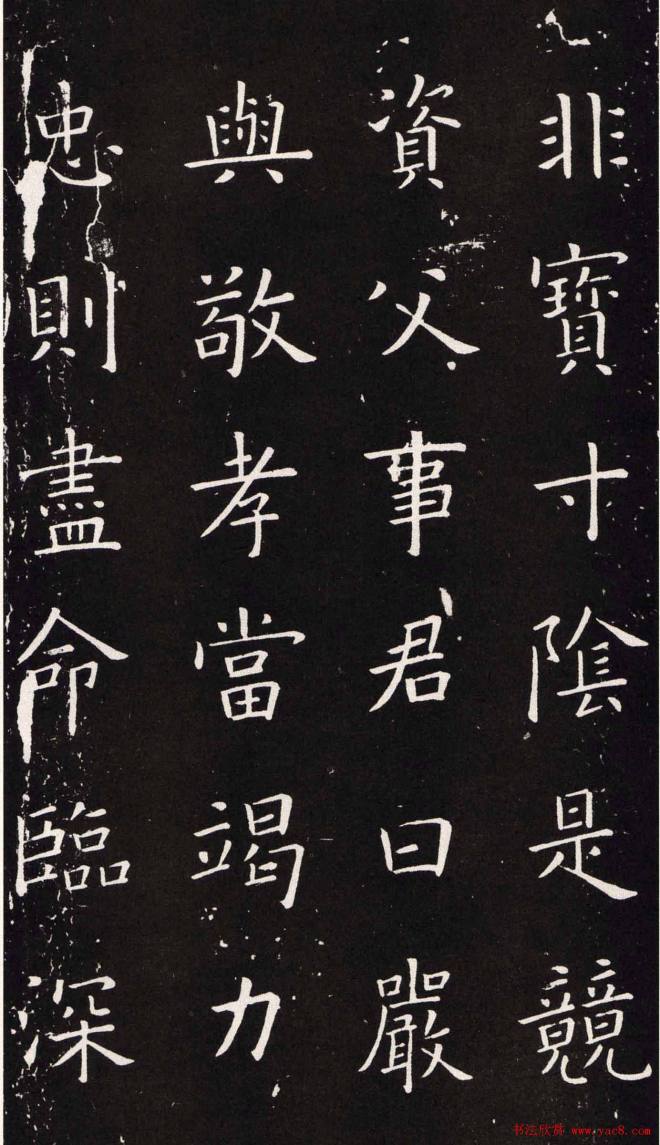 非寶寸陰是競
資父事君曰嚴
與敬孝當竭力
忠則盡命臨深
书法欣赏 www.yac8.com